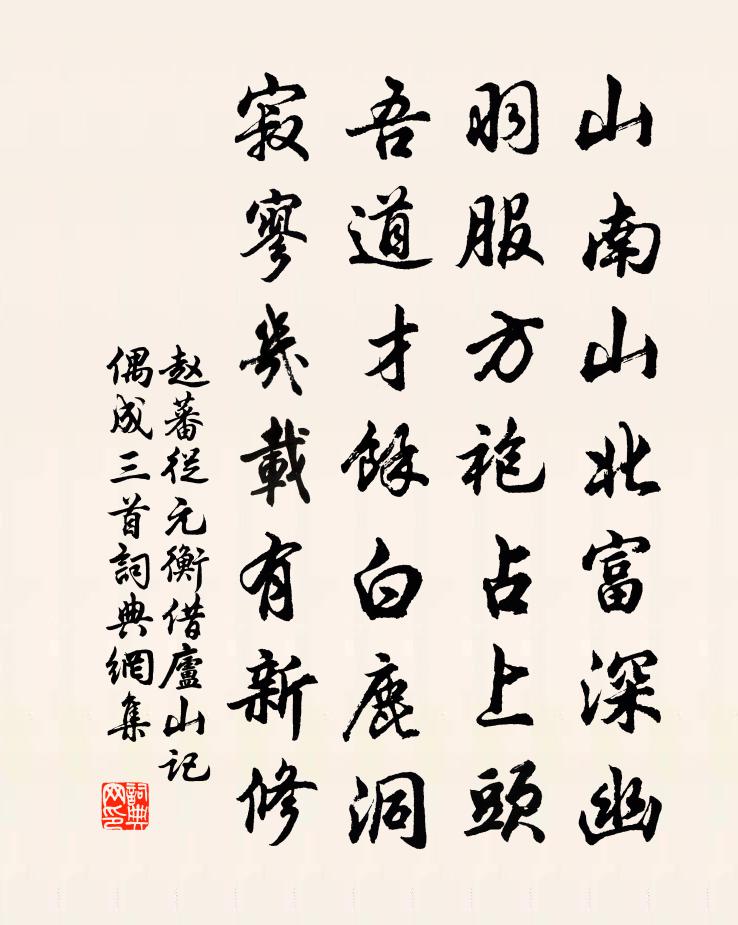 山南山北富深幽
羽服方袍占上頭
吾道才餘白鹿洞
寂寥幾載有新修
赵蕃從元衡借廬山記
偶成三首詞典網集
詞典網印